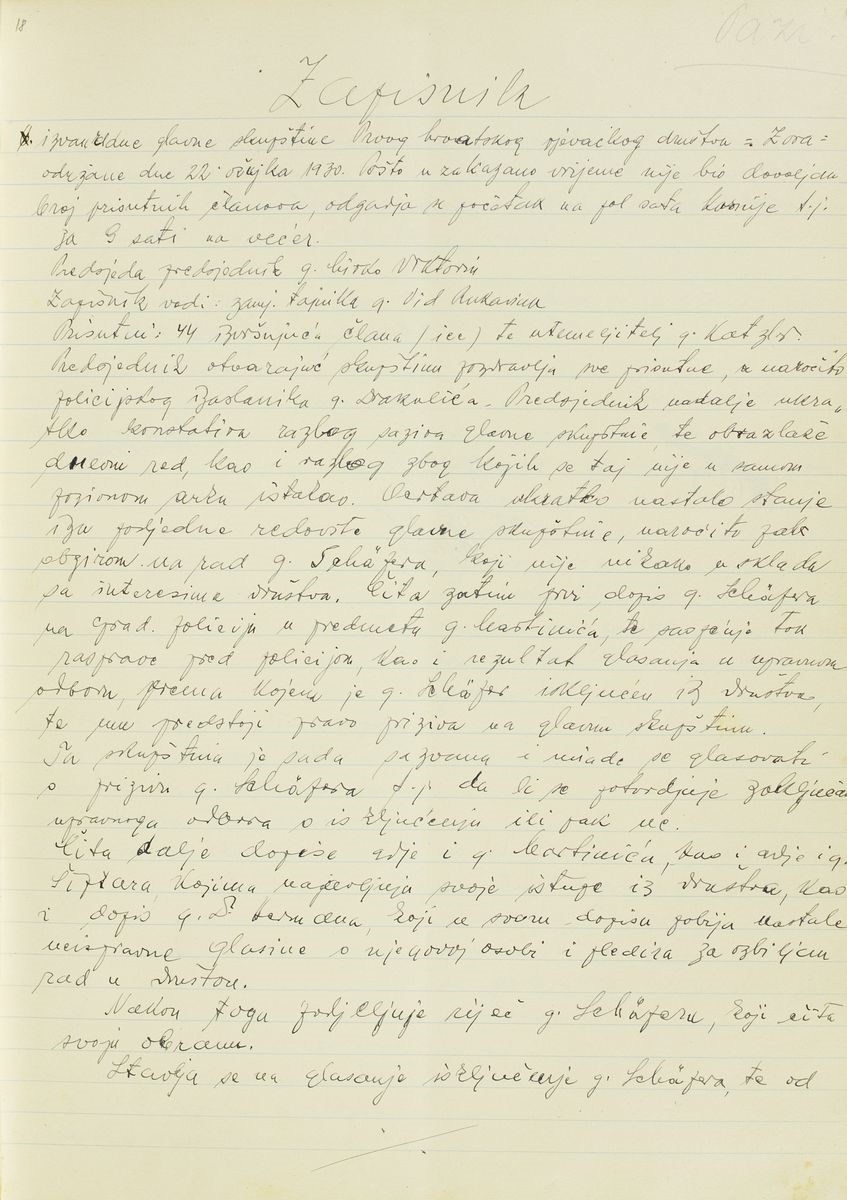 18
Zapisnik
izvanredne glavne skupštine Prvog hrvatskog pjevačkog društva = Zora =
održane dne 22. ožujka 1930. Pošto u zakazano vrijeme nije bio dovoljan
broj prisutnih članova, odgadja se početak na pol sata kasnije t.j.
za 9 sati na večer.
Predsjeda predsjednik g. Mirko
Zapisnik vodi: zamj. tajnika g. Vid Rukavina
Prisutni: 44 izvršujuća člana (ice) te utemeljitelj g.
Predsjednik otvarajuć skupštinu pozdravlja sve prisutne, a naročito
policijskog izaslanika g. Drakulića. Predsjednik nadalje ukra„
tko konstatira razlog saziva glavne skupštine, te obrazlaže
dnevni red, kao i razlog zbog kojih se taj nije u samom
pozivnom arku istakao. Ocrtava ukratko nastalo stanje
iza posljedne redovite glavne skupštine, naročito pak
obzirom na rad g. Schäfera, koji nije nikako u skladu
sa interesima društva. Čita zatim prvi dopis g. Schäfera
na grad. policiju u predmetu g. Martinića, te saopćuje tok
rasprave pred policijom, kao i rezultat glasanja u upravnom
odboru, prema kojem je g. Schäfer isključen iz društva,
te mu predstoji pravo priziva na glavnu skupštinu.
Ta skupština je sada sazvana i imade se glasovati
o prizivu g. Schäfera t.j. da li se potvrdjuje zaključak
upravnoga odbora o isključenju ili pak ne.
Čita dalje dopise gdje i g. Martinića, kao i gdje i g.
kojima najavljuju svoje istupe iz društva, kao
i dopis g. D. Hermana, koji u svom dopisu pobija nastale
neispravne glasine o njegovoj osobi i pledira za ozbiljan
rad u društvu.
Nakon toga podjeljuje riječ g. Schäferu, koji čita
svoju obranu.
Stavlja se na glasanje isključenje g. Schäfera, te od